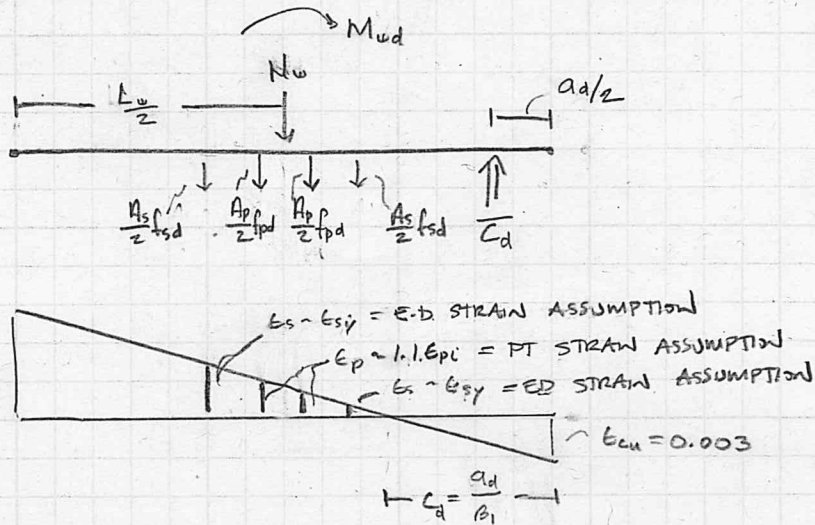 Mwd
Nw
Lw/2
ad/2
As/2 fsd
Ap/2 fpd
Ap/2 fpd
As/2 fsd
Cd
εs ~ εsy = E.D. STRAIN ASSUMPTION
εp ~ 1.1 εpi = PT STRAIN ASSUMPTION
εs ~ εsy = ED STRAIN ASSUMPTION
εcu = 0.003
Cd = ad/β1